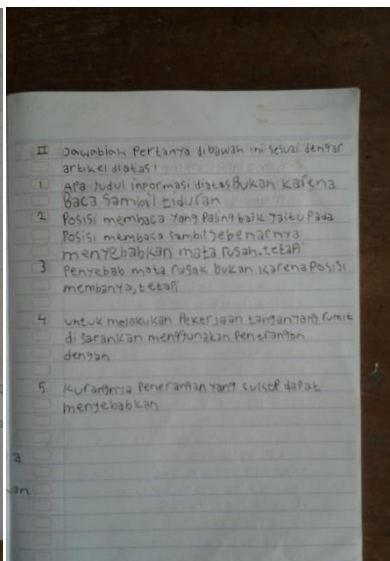 II Jawablah Pertanya dibawah ini sesuai dengar
artikel diatas!
1 Apa Judul inpormasi diatas Bukan Karena
Baca Sambil tiduran
2 Posisi membaca yang Paling baik yaitu Pada
Posisi membaca sambil Sebenarnya
menyebabkan mata rusah.tetapi
3 Penyebab mata rusak bukan karena Posisi
membanya, tetapi
4 untuk melakukan Pekerjaan tangan yang rumit
di sarankan menggunakan Penerangan
dengan
5 Kurangnya Penerangan yang cukop dapat
menyebabkan
a
an